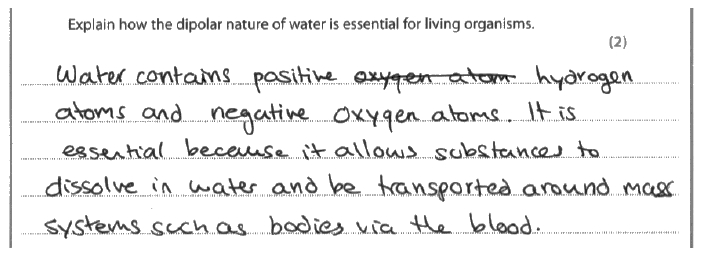 Explain how the dipolar nature of water is essential for living organisms.
(2)
Water contains positive oxygen atom hydrogen
atoms and negative oxygen atoms. It is
essential because it allows substances to
dissolve in water and be transported around mass
systems such as bodies via the blood.